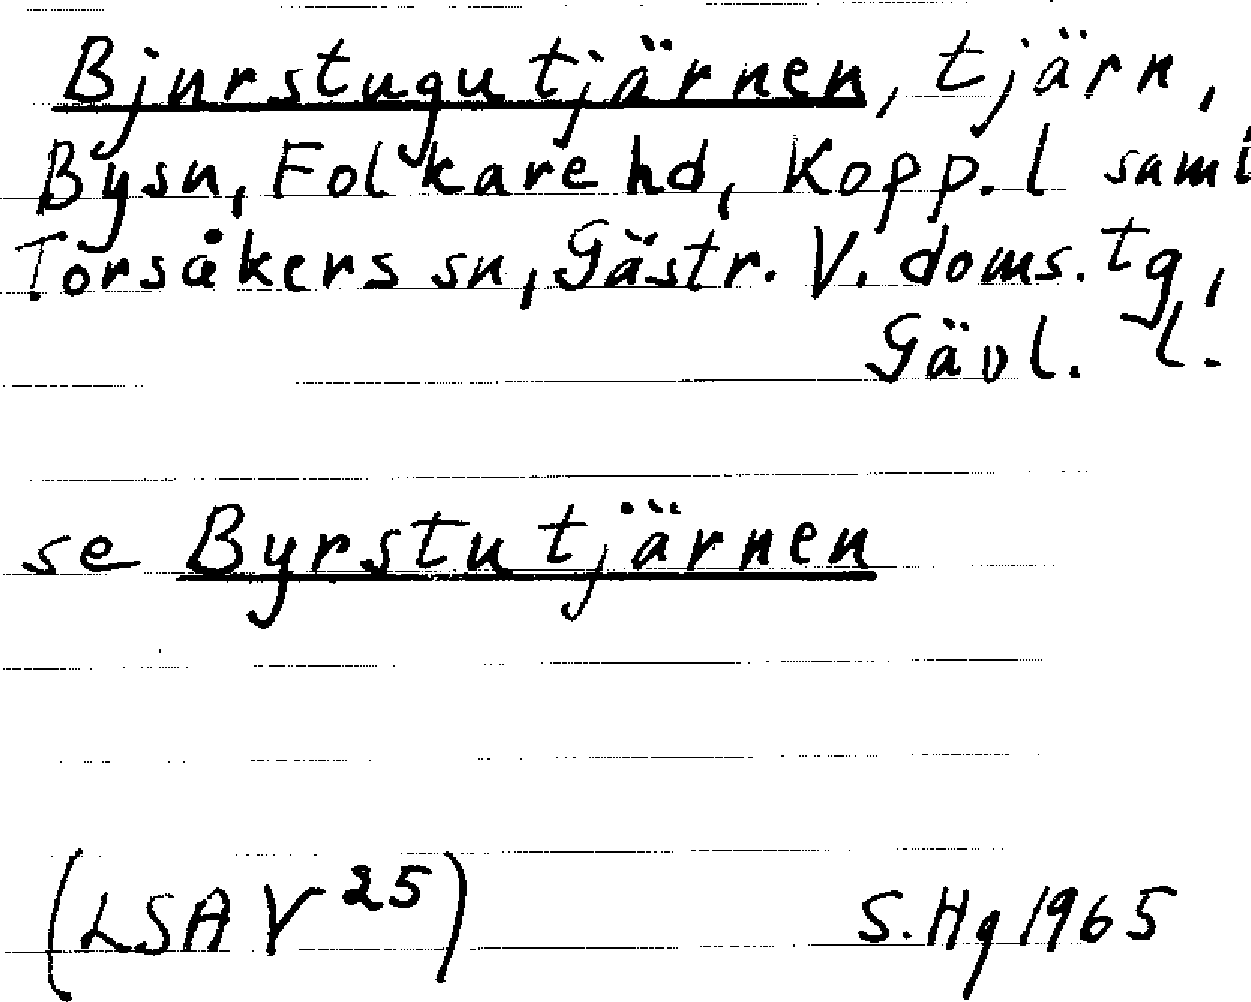 Bjurstugutjärnen, tjärn,
By sn, Folkare hd, Kopp. l saml
Torsåkers sn, Gästr. V. doms. tg,
Gävl. l.
se Byrstutjärnen
(LSA V 25) S. Hg 1965